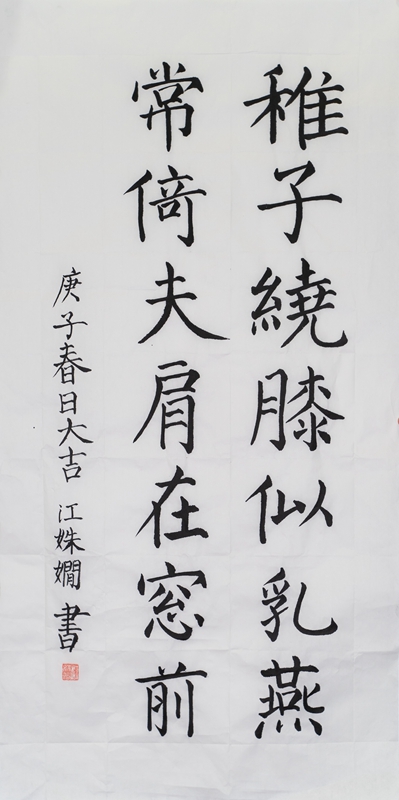 稚子繞膝似乳燕
常倚夫肩在窓前
庚子春日大吉 江姝嫺書